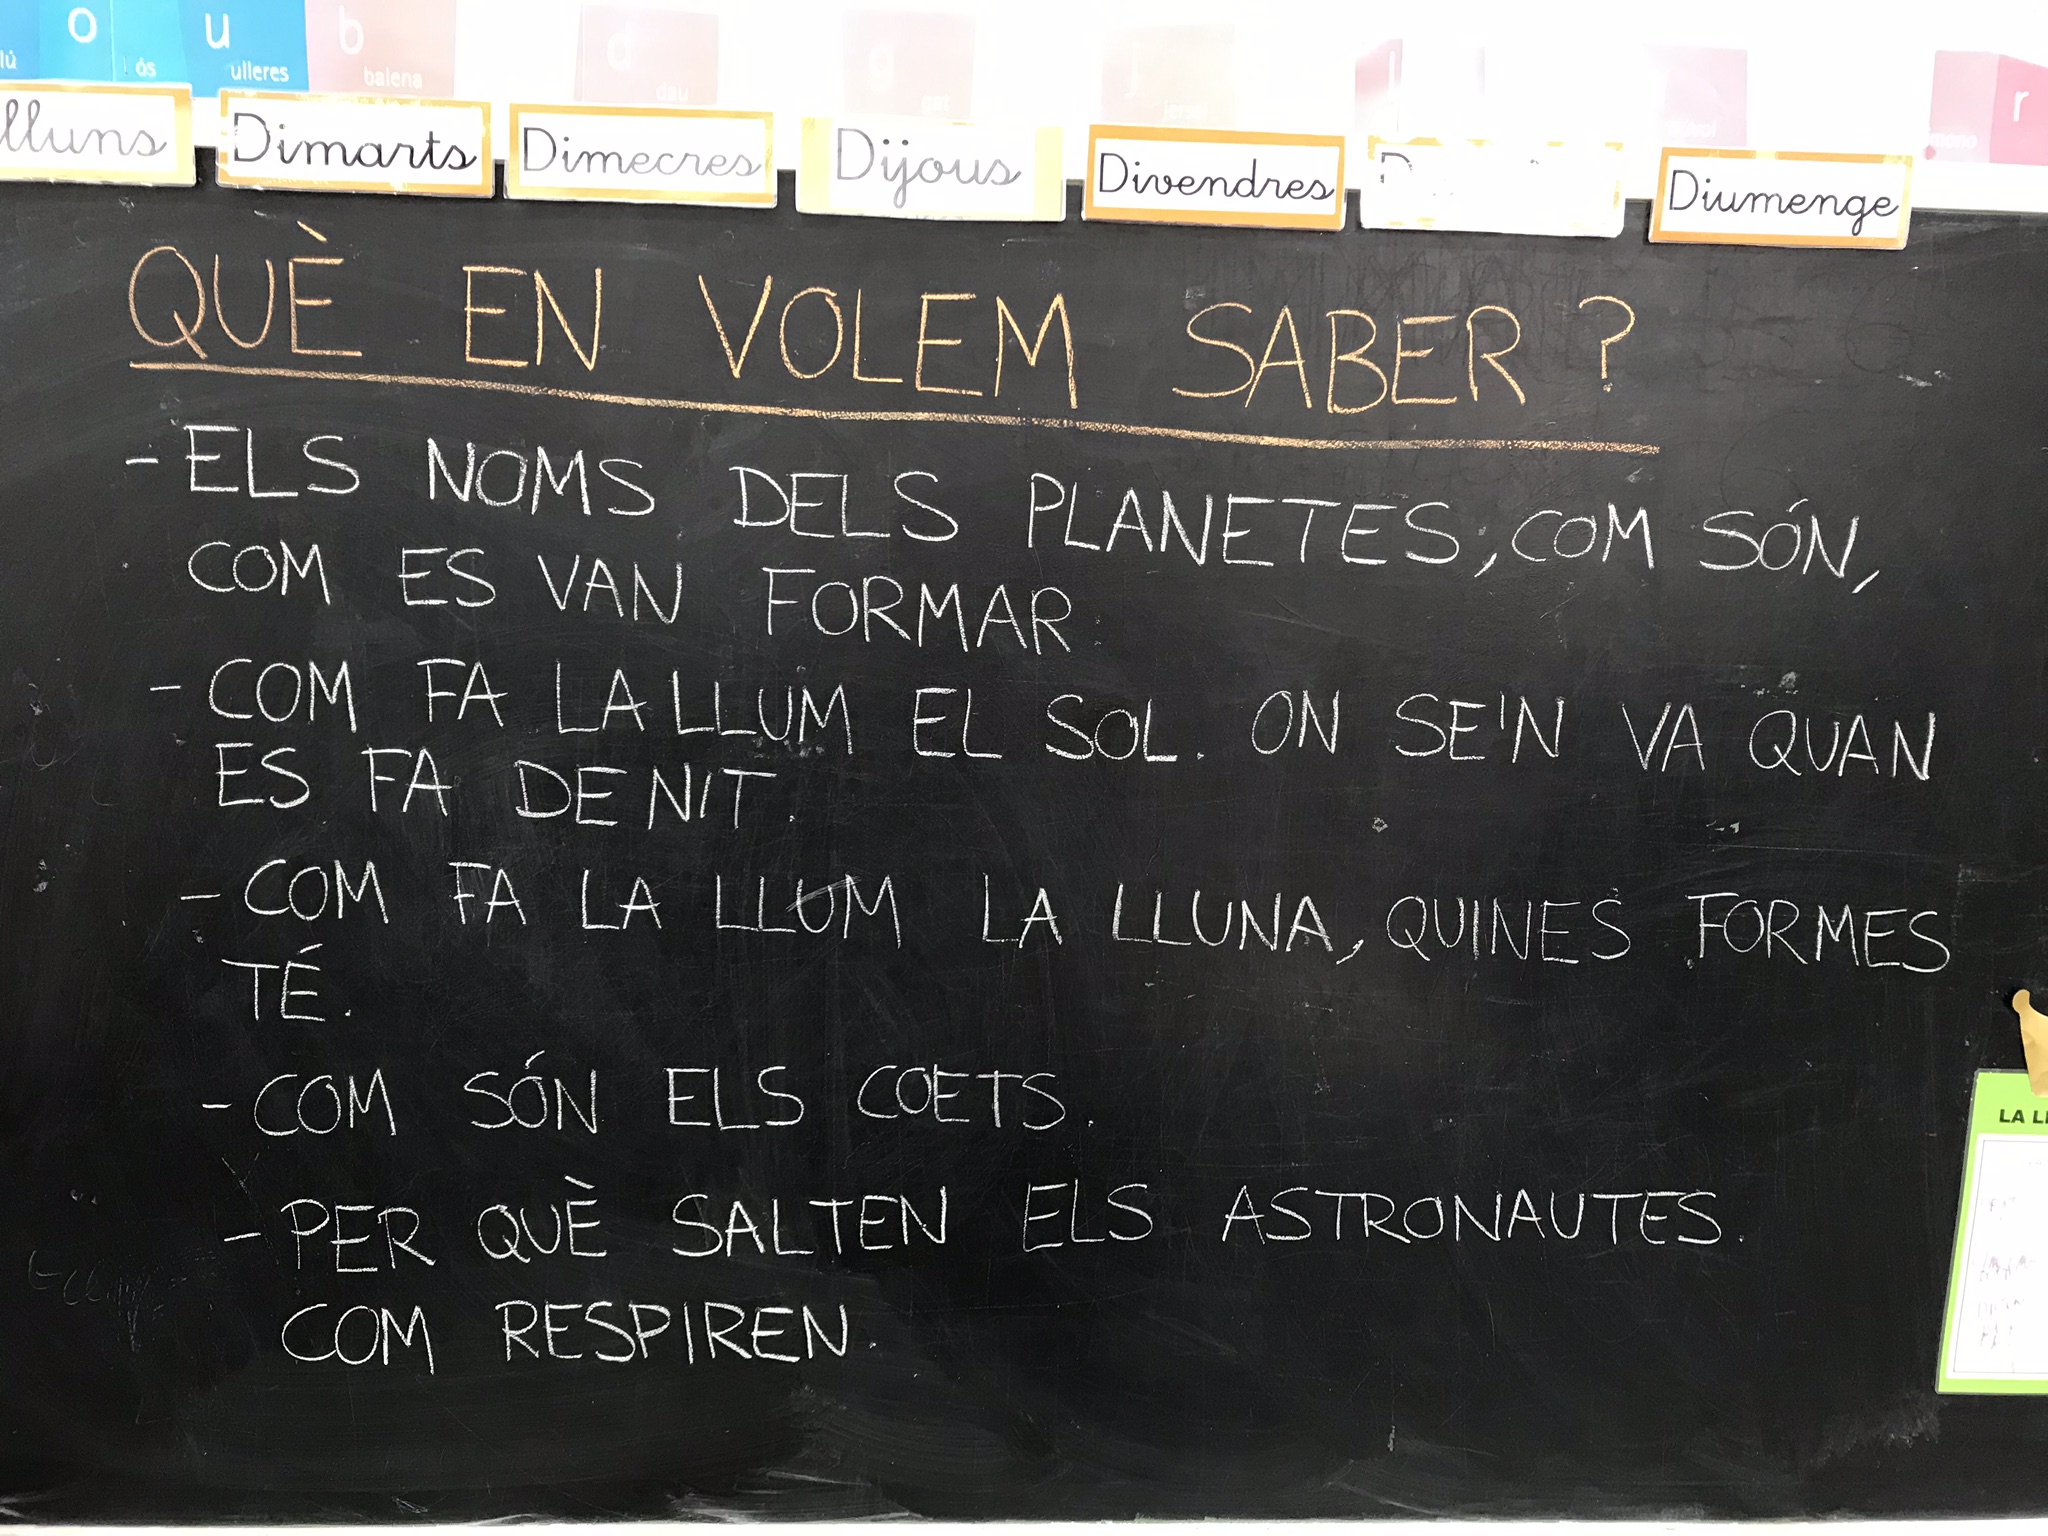 o u b d g j l r
lú ós ulleres balena dau gat
lluns Dimarts Dimecres Dijous Divendres Diumenge
QUÈ EN VOLEM SABER?
- ELS NOMS DELS PLANETES, COM SÓN,
COM ES VAN FORMAR.
- COM FA LA LLUM EL SOL. ON SE'N VA QUAN
ES FA DE NIT.
- COM FA LA LLUM LA LLUNA, QUINES FORMES
TÉ.
- COM SÓN ELS COETS.
- PER QUÈ SALTEN ELS ASTRONAUTES.
COM RESPIREN.